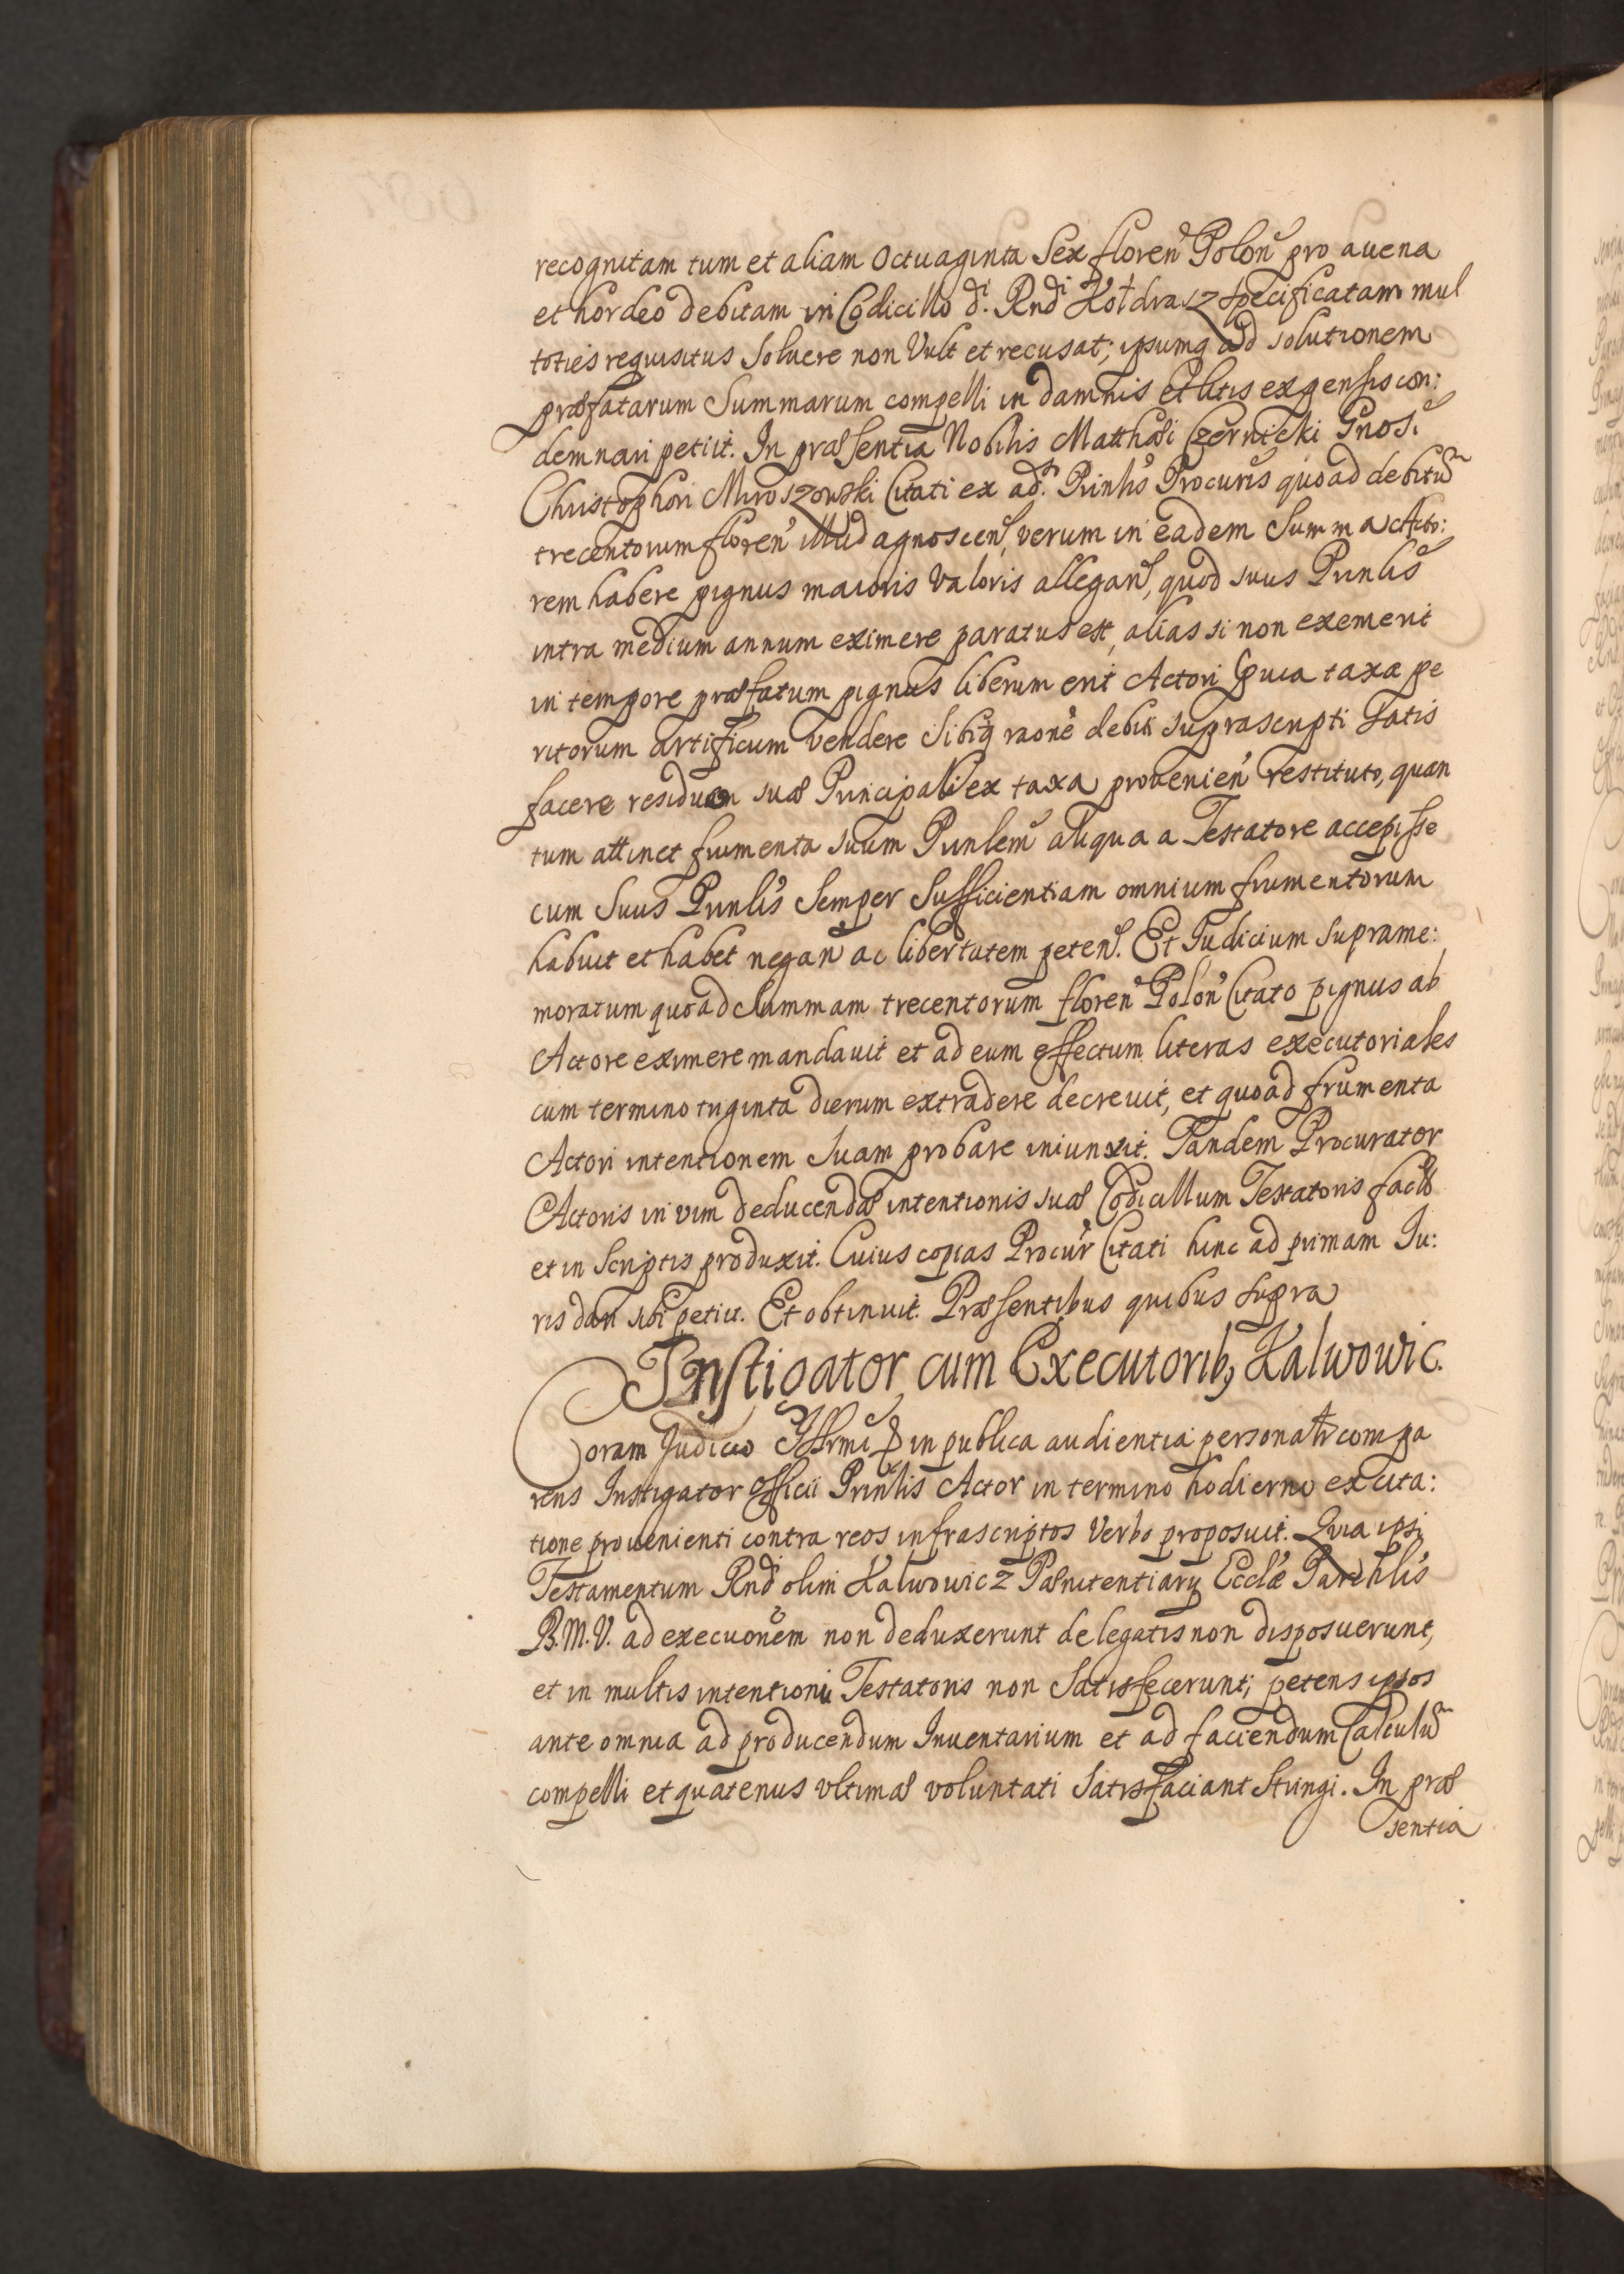 recognitam tum et aliam Octuaginta Sex floren Polon pro auena
et hordeo debitam in Codicillo di. Rndi Kołdrasz specificatam mul
toties requisitus Soluere non Vult et recusat; ipsumq ad solutionem
præfatarum Summarum compelli in damnis et litis expensis con:
demnari petiit. In præsentia Nobilis Matthæi Czernicki Gnosi
Christophori Miroszowski Citati ex ad. Prinlis Procuris quoad debitū
trecentorum floren illud agnoscen, verum in eadem Summa Acto:
rem habere pignus maioris Valoris allegan, quod suus Prinlis
intra medium annum eximere paratus est, alias si non exemerit
in tempore præfatum pignus liberum erit Actori præuia taxa pe
ritorum artificum vendere Sibiq raone debiti suprascripti Satis
facere residuum suæ Principali ex taxa provenien restituto, quan
tum attinet frumenta suum Prinlem aliqua a Testatore accepisse
cum Suus Prinlis Semper Sufficientiam omnium frumentorum
habuit et habet negan ac libertatem peten. Et Iudicium Suprame:
moratum quoad Summam trecentorum floren Polon Citato pignus ab
Actore eximere mandauit et ad eum effectum literas executoriales
cum termino triginta dierum extradere decreuit, et quoad frumenta
Actori intentionem Suam probare iniunxit. Tandem Procurator
Actoris in vim deducendæ intentionis suæ Codicillum Testatoris facto
et in Scriptis produxit. Cuius copias Procur Citati hinc ad primam Iu:
ris dari sibi petiit. Et obtinuit. Præsentibus quibus supra
Instigator cum Executorib, Kalwowic.
Coram Judicio Illrmi in publica audientia personalr compa
rens Instigator Officii Prinlis Actor in termino hodierno ex cita:
tione prouenienti contra reos infrascriptos Verbo proposuit. Quia ipsi
Testamentum Rndi olim Kalwowicz Pænitentiarij Ecclæ Parchlis
B.M.V. ad execuonem non deduxerunt de legatis non disposuerunt,
et in multis intentioni Testatoris non Satisfecerunt; petens ipsos
ante omnia ad producendum Inuentarium et ad faciendum Calculū
compelli et quatenus vltimæ voluntati Satisfaciant Stringi. In præ
sentia